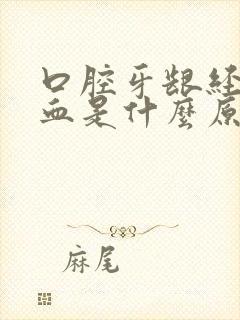 口腔牙龈经
血是什麼原
麻尾